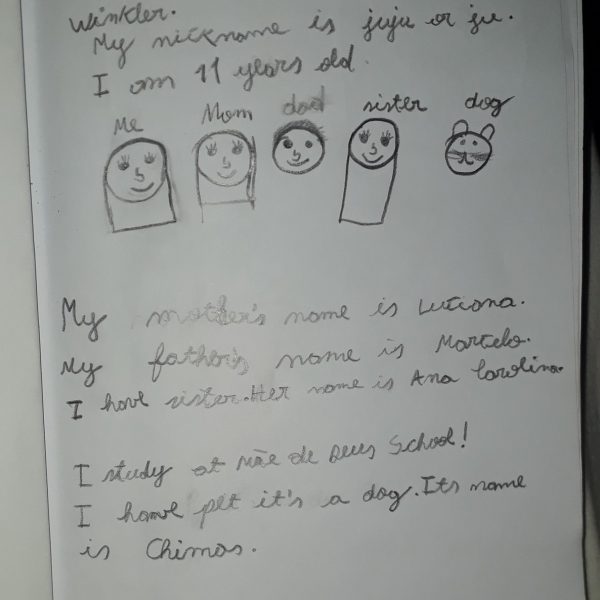 Winkler.
My nickname is juju or ju.
I am 11 years old.
Me Mom dad sister dog
My mother's name is Luciana.
My father's name is Marcelo.
I have sister. Her name is Ana Carolina.
I study at Mãe de Deus School!
I have pet it's a dog. Its name
is Chimas.